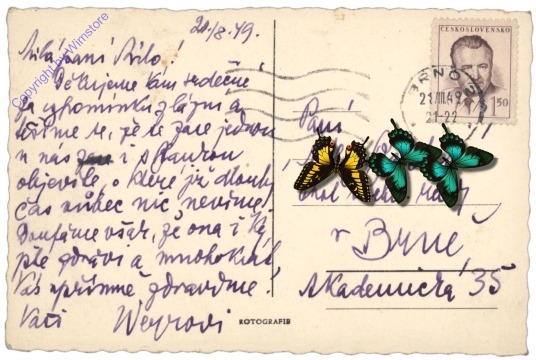 21./8.49.
Milá paní Bílo!
Děkujeme Vám srdečně
za vzpomínku z lázní a
těšíme se, že se zase jednou
u nás i s
objevíte, o které již dlouhý
čas vůbec nic nevíme!
Doufáme však, že ona i
jste zdrávi a mnohokrát
Vás upřímně zdravíme!
Vaši Weyrovi
Copyright by Wimstore
ROTOGRAFIE
ČESKOSLOVENSKO
1.50
BRNO
21.VIII.49
21-22
Paní
v Brně
Akademická 35